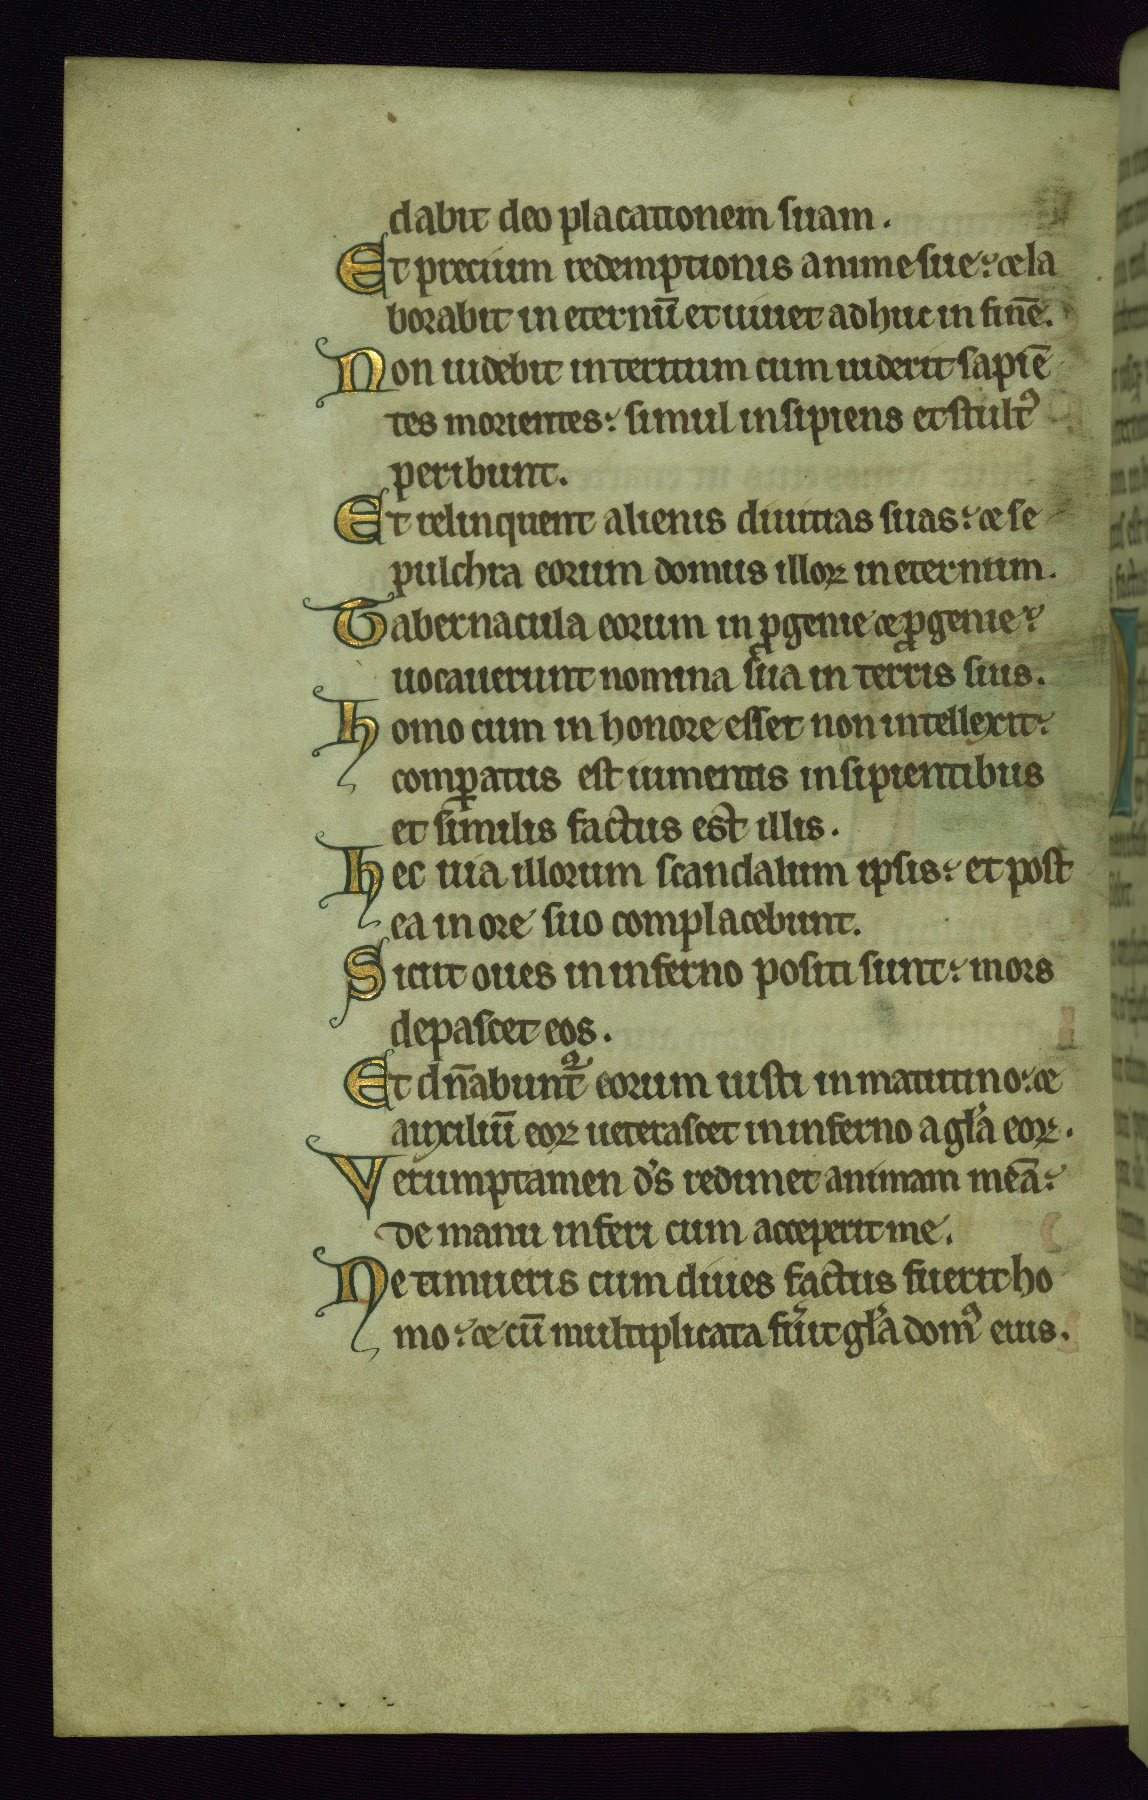 dabit deo placationem suam.
Et precium redemptionis anime sue: et la
borabit in eternū et uiuet adhuc in finē.
Non uidebit interitum cum uiderit sapiē
tes morientes: simul insipiens et stultꝰ
peribunt.
Et relinquent alienis diuitias suas: et se
pulchra eorum domus illoꝝ in eternum.
Tabernacula eorum in ꝓgenie et ꝓgenie:
uocauerunt nomina sua in terris suis.
Homo cum in honore esset non intellexit:
comꝑatus est iumentis insipientibus
et similis factus est illis.
Hec uia illorum scandalum ipsis: et post
ea in ore suo complacebunt.
Sicut oues in inferno positi sunt: mors
depascet eos.
Et dn̄abunt᷑ eorum iusti in matutino: et
auxiliū eoꝝ ueterascet in inferno a gl̓a eoꝝ.
Verumptamen d̓s redimet animam meā:
de manu inferi cum acceperit me.
Ne timueris cum diues factus fuerit ho
mo: et cū multiplicata fu̓it gl̓a domꝰ eius.